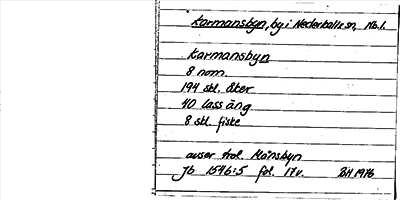 Karmansbyn, by i Nederkalix sn, Nb.l.
Karmansbyn
8 nom.
194 stl. åker
40 lass äng
8 stl. fiske
avser trol. Månsbyn
Jb 1546:5 fol. 17v. BH 1976